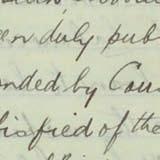 en duly pub
nded by Cou
isfied of the